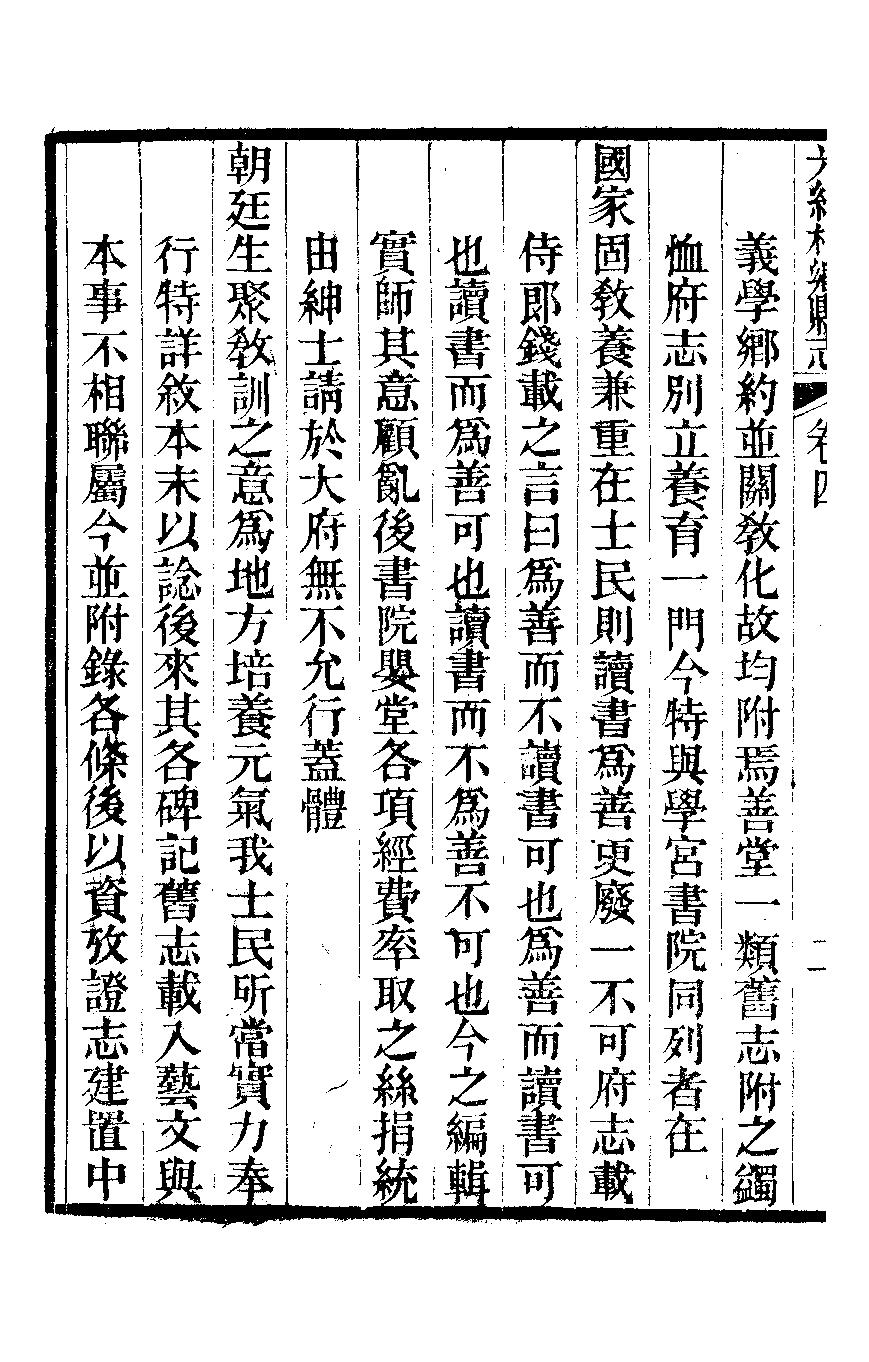 卷四
二
義學鄉約並關敎化故均附焉善堂一類舊志附之蠲
恤府志別立養育一門今特與學宮書院同列者在
國家固敎養兼重在士民則讀書爲善更廢一不可府志載
侍郎錢載之言曰爲善而不讀書可也爲善而讀書可
也讀書而爲善可也讀書而不爲善不可也今之編輯
實師其意顧亂後書院嬰堂各項經費率取之絲捐統
由紳士請於大府無不允行蓋體
朝廷生聚敎訓之意爲地方培養元氣我士民所當實力奉
行特詳敘本末以諗後來其各碑記舊志載入藝文與
本事不相聯屬今並附錄各條後以資攷證志建置中